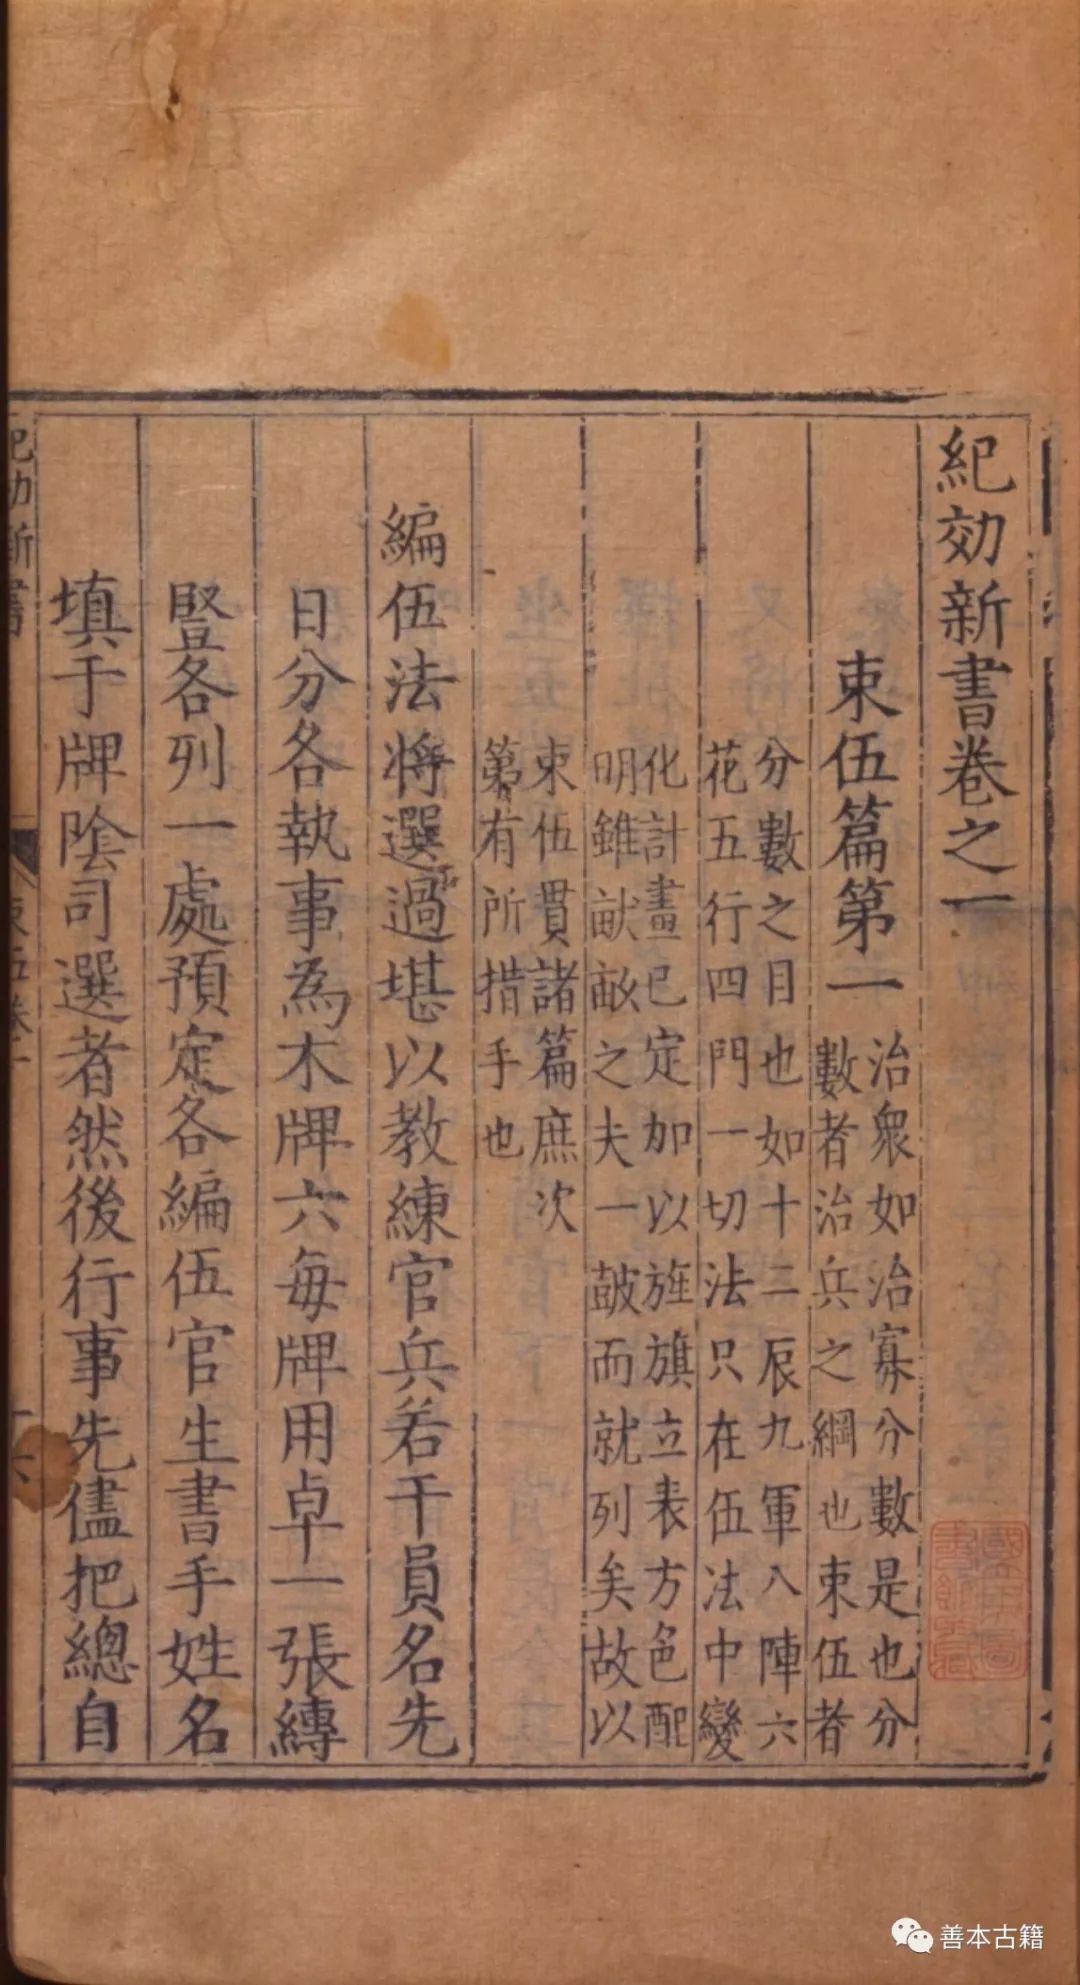 紀効新書卷之一
束伍篇第一
治衆如治寡分數是也分
數者治兵之綱也束伍者
分數之目也如十二辰九軍八陣六
花五行四門一切法只在伍法中變
化計畫已定加以旌旗立表方色配
明雖畎畝之夫一鼓而就列矣故以
束伍貫諸篇庶次
第有所措手也
編伍法將選過堪以教練官兵若干員名先
日分各執事為木牌六每牌用卓一張縳
竪各列一處預定各編伍官生書手姓名
填于牌陰司選者然後行事先儘把總自
紀効新書
束伍卷一
善本古籍